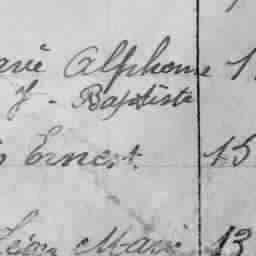 Alphonse 1
J. Baptiste
Ernest. 15
Léon Marie 13